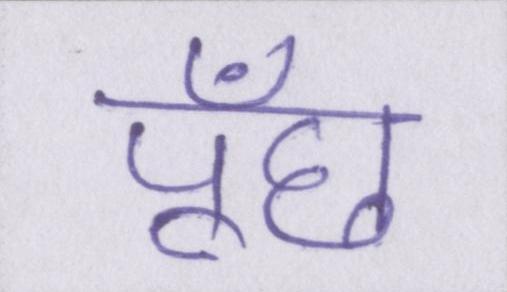 पूँछ